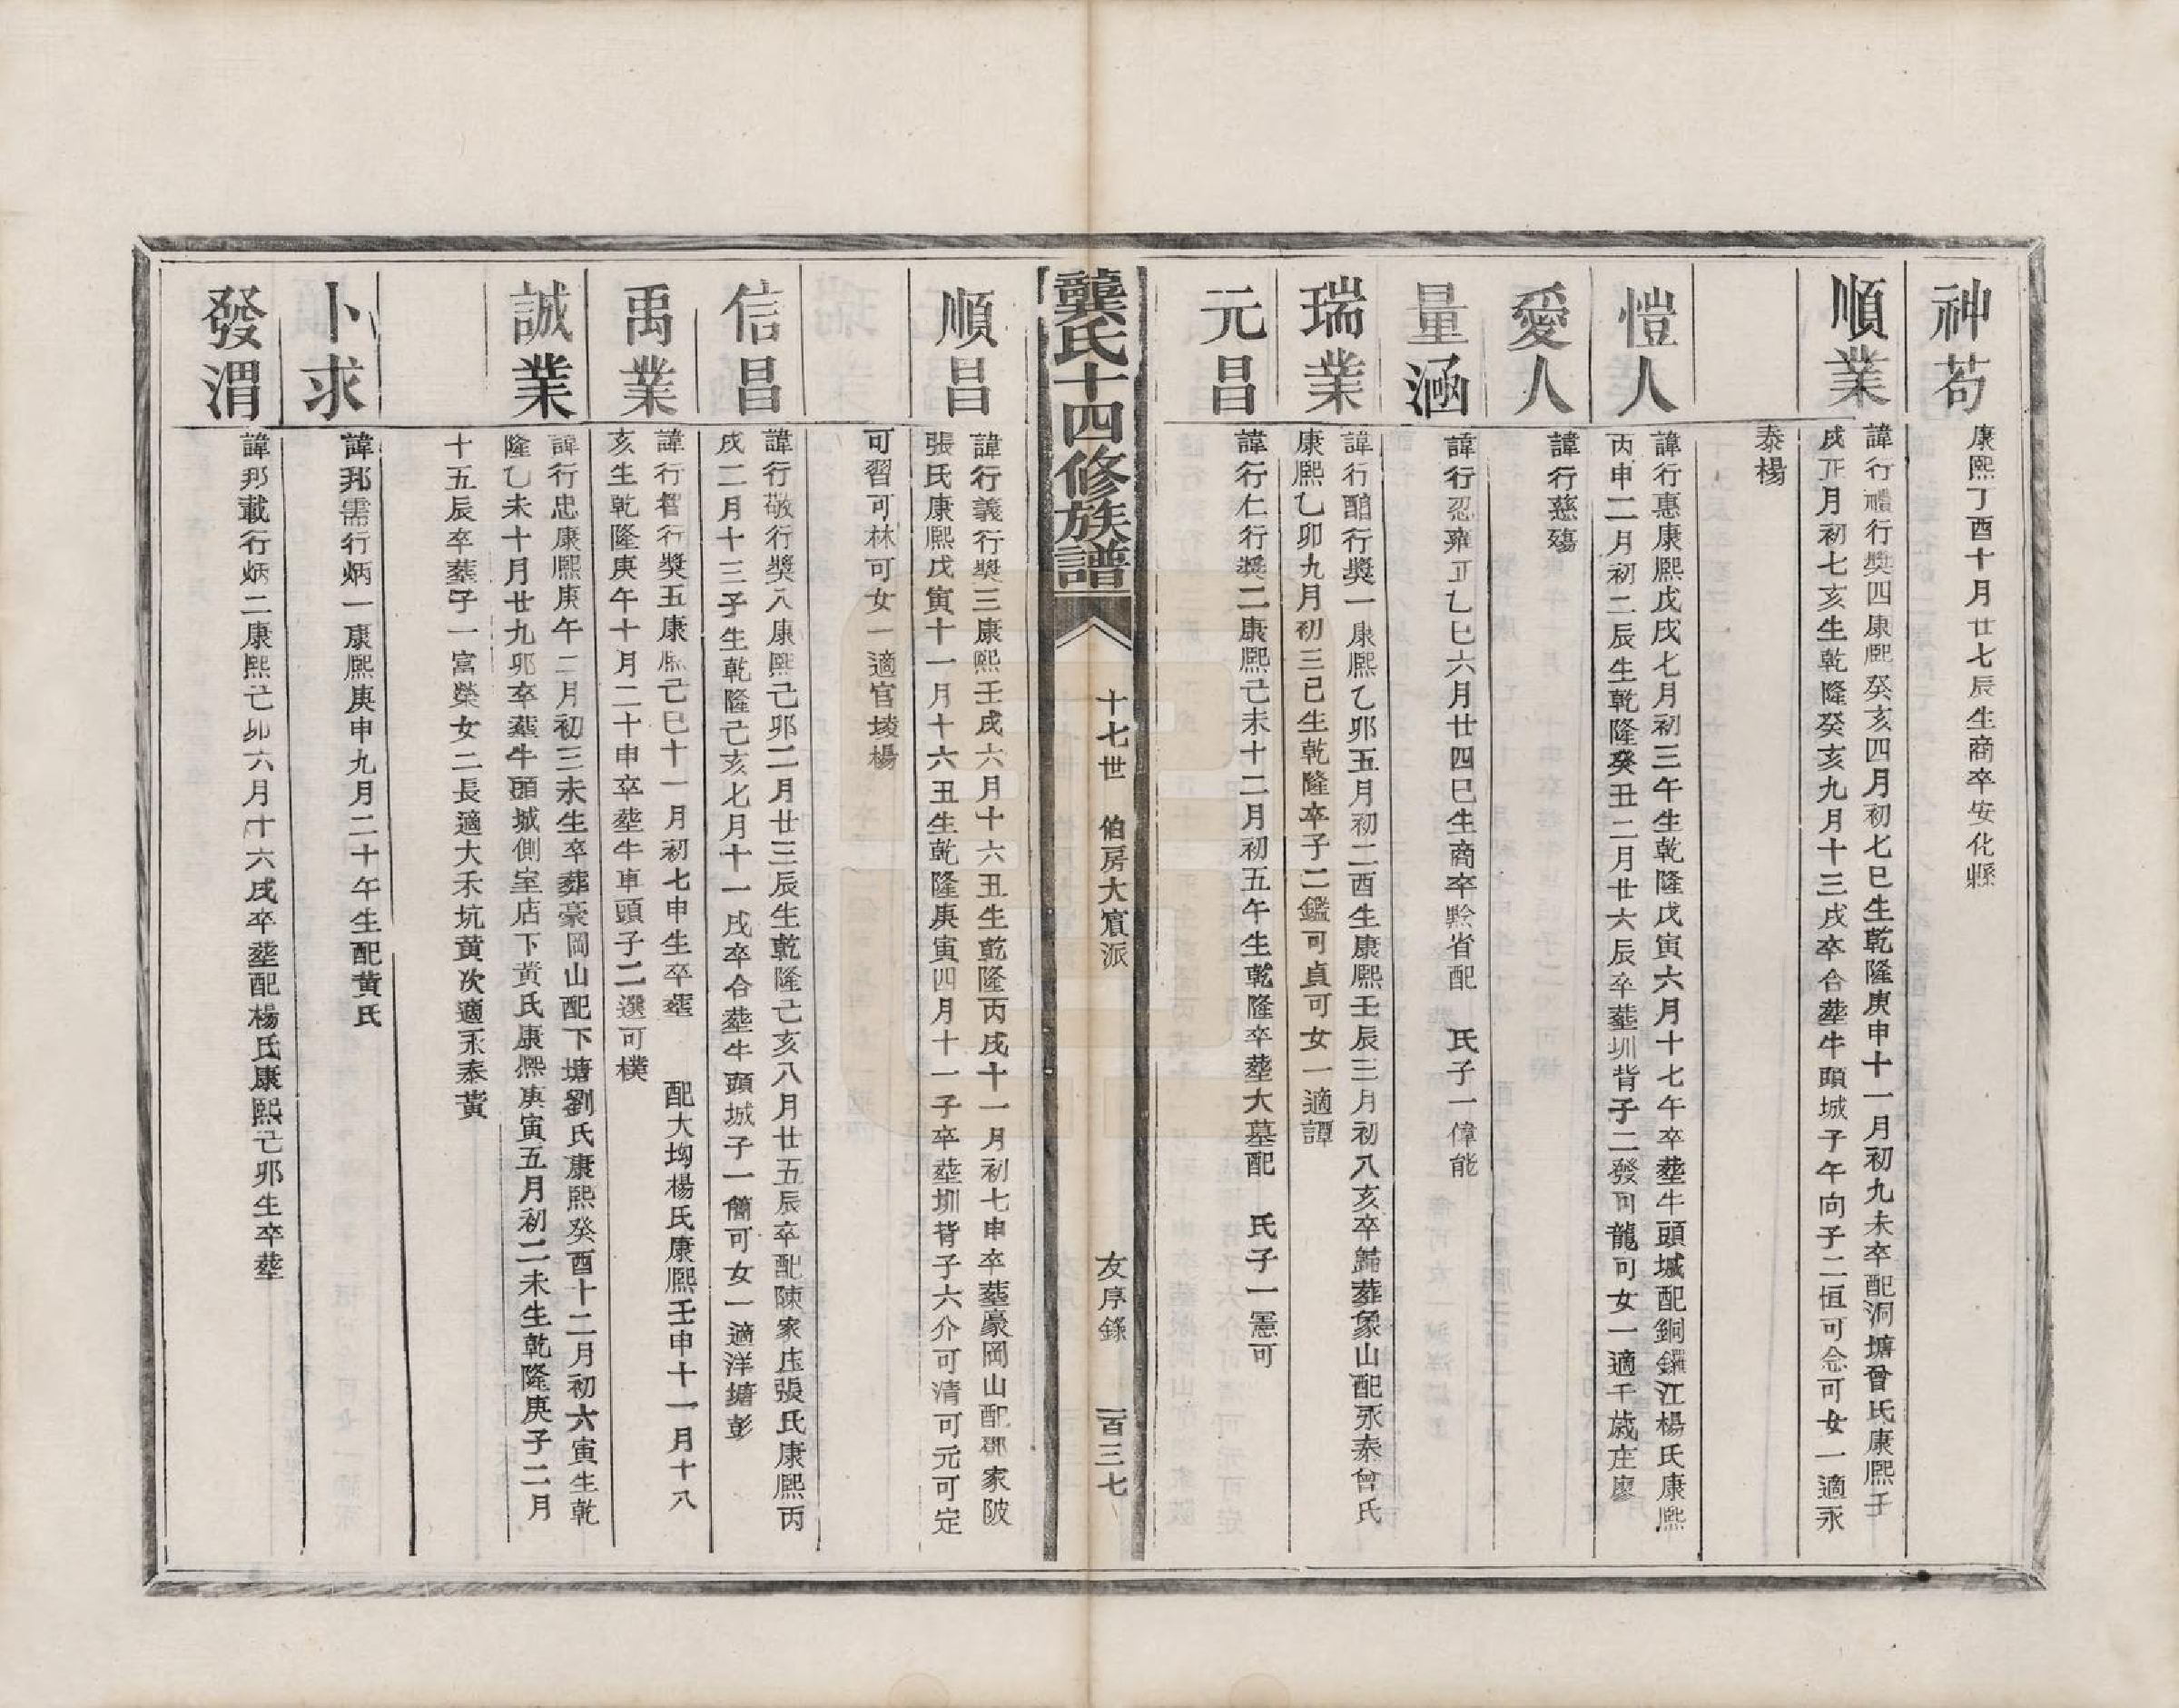 神苟
康熙丁酉十月廿七辰生商卒安化縣
順業
諱行禮行獎四康熙癸亥四月初七巳生乾隆庚申十一月初九未卒配洞塘曾氏康熙壬
戌正月初七亥生乾隆癸亥九月十三戌卒合塟牛頭城子午向子二恒可念可女一適永
泰楊
愷人
諱行惠康熙戊戌七月初三午生乾隆戊寅六月十七午卒塟牛頭城配銅鑼江楊氏康熙
丙申二月初二辰生乾隆癸丑二月廿六辰卒塟圳背子二發回龍可女一適千歲庄廖
愛人
諱行慈殤
量涵
諱行忍雍正乙巳六月廿四巳生商卒黔省配 氏子一偉能
瑞業
諱行酯行獎一康熙乙卯五月初二酉生康熙壬辰三月初八亥卒歸葬象山配永泰曾氏
康熙乙卯九月初三巳生乾隆卒子二鑑可貞可女一適譚
元昌
諱行仁行獎二康熙己未十二月初五午生乾隆卒塟大墓配 氏子一憲可
龔氏十四修族譜
十七世 伯房大賔派
友序錄
一百三七
順昌
諱行義行獎三康熙壬戌六月十六丑生乾隆丙戌十一月初七申卒塟豪岡山配鄒家陂
張氏康熙戊寅十一月十六丑生乾隆庚寅四月十一子卒塟圳背子六介可清可元可定
可習可林可女一適官堎楊
信昌
諱行敬行獎八康熙己卯二月廿三辰生乾隆己亥八月廿五辰卒配陳家庄張氏康熙丙
戌二月十三子生乾隆己亥七月十一戌卒合塟牛頭城子一簡可女一適洋塘彭
禹業
諱行智行獎五康熙己巳十一月初七申生卒塟 配大坳楊氏康熙壬申十一月十八
亥生乾隆庚午十月二十申卒塟牛車頭子二選可樸
誠業
諱行忠康熙庚午二月初三未生卒葬豪岡山配下塘劉氏康熙癸酉十二月初六寅生乾
隆乙未十月廿九卯卒塟牛頭城側室店下黃氏康熙庚寅五月初二未生乾隆庚子二月
十五辰卒塟子一富榮女二長適大禾坑黃次適永泰黃
卜求
諱邦需行炳一康熙庚申九月二十午生配黃氏
發渭
諱邦載行炳二康熙己卯六月十六戌卒塟配楊氏康熙己卯生卒塟